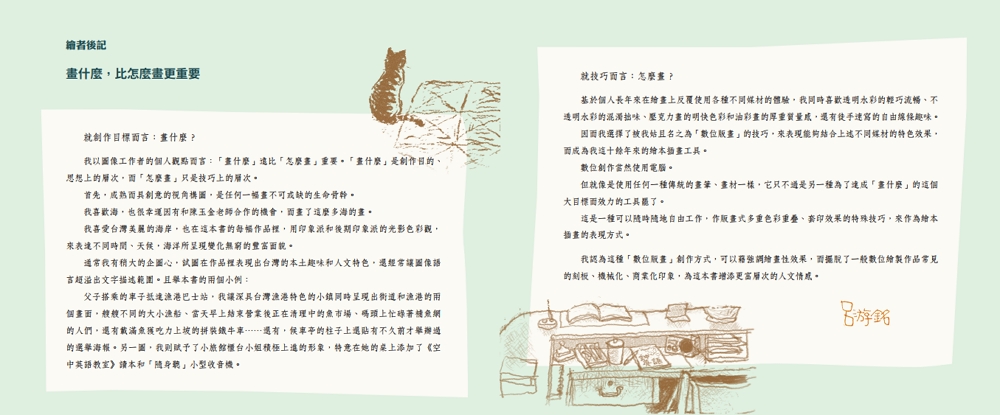 繪者後記
畫什麼，比怎麼畫更重要
就創作目標而言：畫什麼？
我以圖像工作者的個人觀點而言：「畫什麼」遠比「怎麼畫」重要。「畫什麼」是創作目的、
思想上的層次，而「怎麼畫」只是技巧上的層次。
首先，成熟而具創意的視角構圖，是任何一幅畫不可或缺的生命骨幹。
我喜歡海，也很幸運因有和陳玉金老師合作的機會，而畫了這麼多海的畫。
我喜愛台灣美麗的海岸，也在這本書的每幅作品裡，用印象派和後期印象派的光影色彩觀，
來表達不同時間、天候，海洋所呈現變化無窮的豐富面貌。
通常我有稍大的企圖心，試圖在作品裡表現出台灣的本土趣味和人文特色，還經常讓圖像語
言超溢出文字描述範圍。且舉本書的兩個小例：
父子搭乘的車子抵達漁港巴士站，我讓深具台灣漁港特色的小鎮同時呈現出街道和漁港的兩
個畫面，艘艘不同的大小漁船、當天早上結束營業後正在清理中的魚市場、碼頭上忙碌著補魚網
的人們，還有載滿魚獲吃力上坡的拼裝鐵牛車……還有，候車亭的柱子上還貼有不久前才舉辦過
的選舉海報。另一圖，我則賦予了小旅館櫃台小姐積極上進的形象，特意在她的桌上添加了《空
中英語教室》讀本和「隨身聽」小型收音機。
就技巧而言：怎麼畫？
基於個人長年來在繪畫上反覆使用各種不同媒材的體驗，我同時喜歡透明水彩的輕巧流暢、不
透明水彩的混濁拙味、壓克力畫的明快色彩和油彩畫的厚重質量感，還有徒手速寫的自由線條趣味。
因而我選擇了被我姑且名之為「數位版畫」的技巧，來表現能夠結合上述不同媒材的特色效果，
而成為我這十餘年來的繪本插畫工具。
數位創作當然使用電腦。
但就像是使用任何一種傳統的畫筆、畫材一樣，它只不過是另一種為了達成「畫什麼」的這個
大目標而效力的工具罷了。
這是一種可以隨時隨地自由工作，作版畫式多重色彩重疊、套印效果的特殊技巧，來作為繪本
插畫的表現方式。
我認為這種「數位版畫」創作方式，可以藉強調繪畫性效果，而擺脫了一般數位繪製作品常見
的刻板、機械化、商業化印象，為這本書增添更富層次的人文情感。
呂游銘